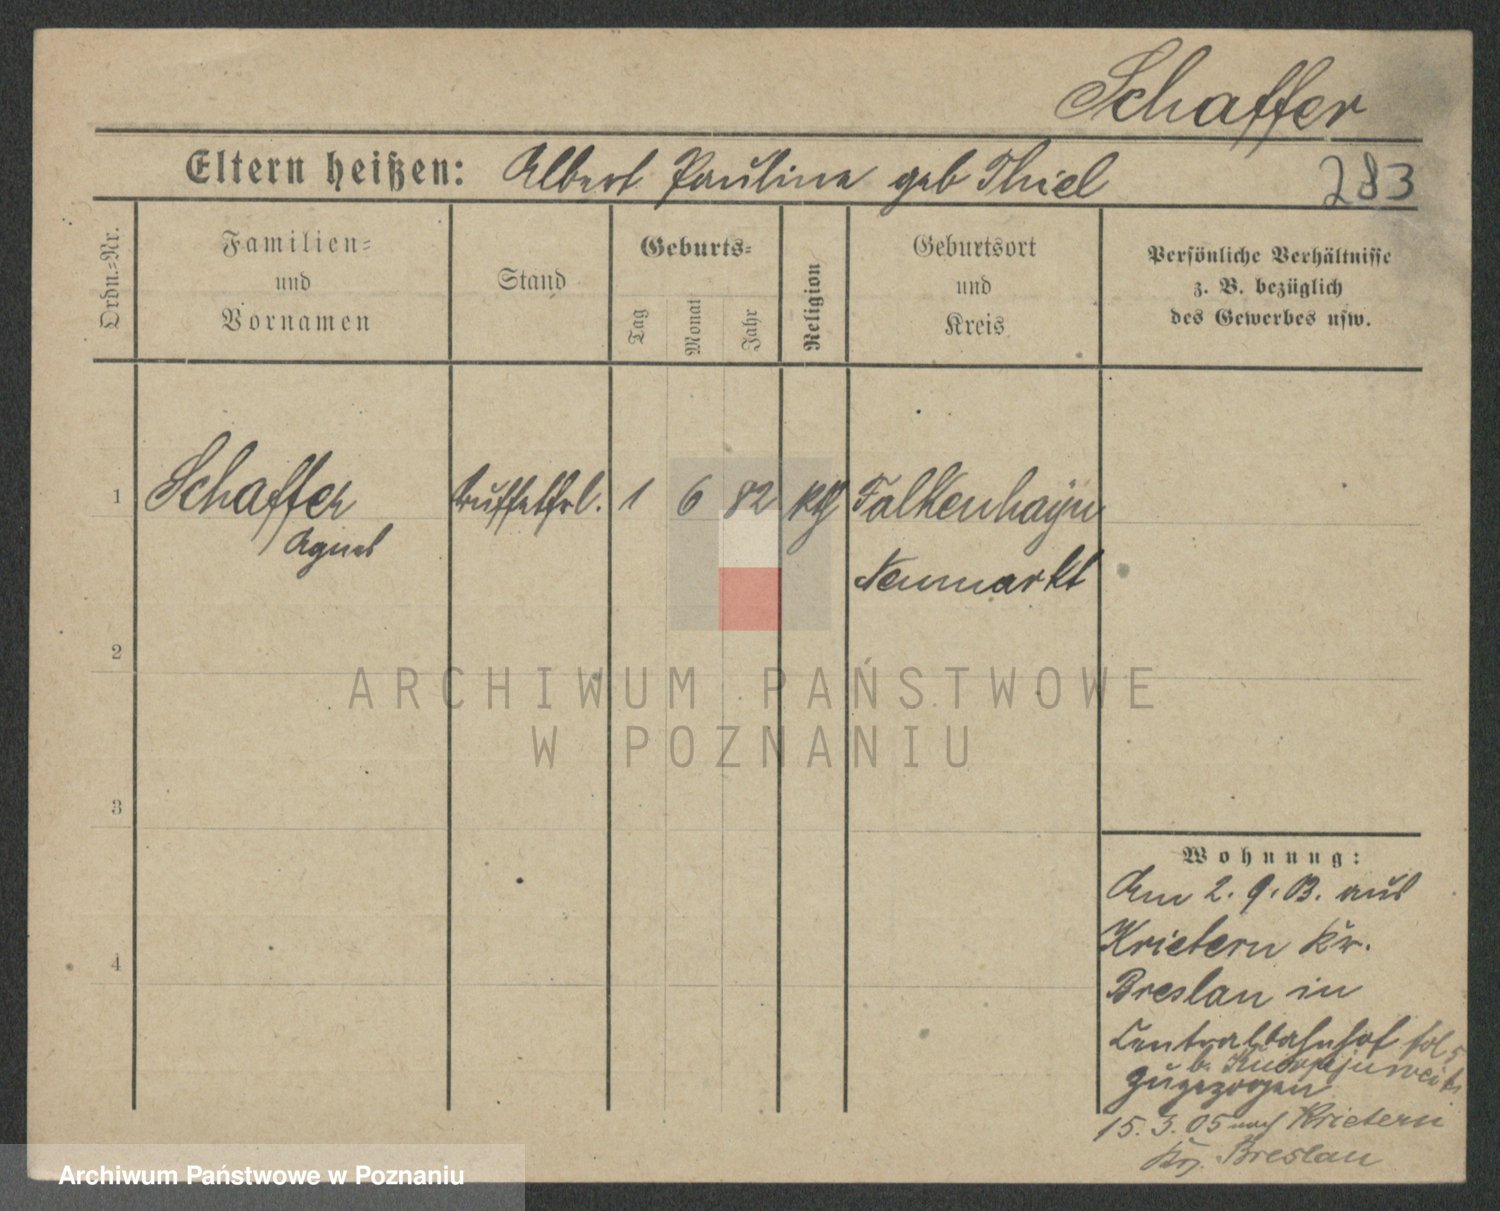 Schaffer
Eltern heißen: Albert Pauline geb Thiel 283
Ordn.=Nr.
Familien=
und
Vornamen
Stand
Geburts=
Tag
Monat
Jahr
Religion
Geburtsort
und
Kreis
Persönliche Verhältnisse
z. B. bezüglich
des Gewerbes usw.
1 Schaffer Buffetfrl. 1 6 82 kth Falkenhayn
Agnes
Neumarkt
2
3
4
ARCHIWUM PAŃSTWOWE
W POZNANIU
Wohnung:
Am 2. 9. 03. aus
Krietern Kr.
Breslau in
Centralbahnhof fol 5
b.
zugezogen
15. 3. 05 nach Krietern
Kr. Breslau
Archiwum Państwowe w Poznaniu